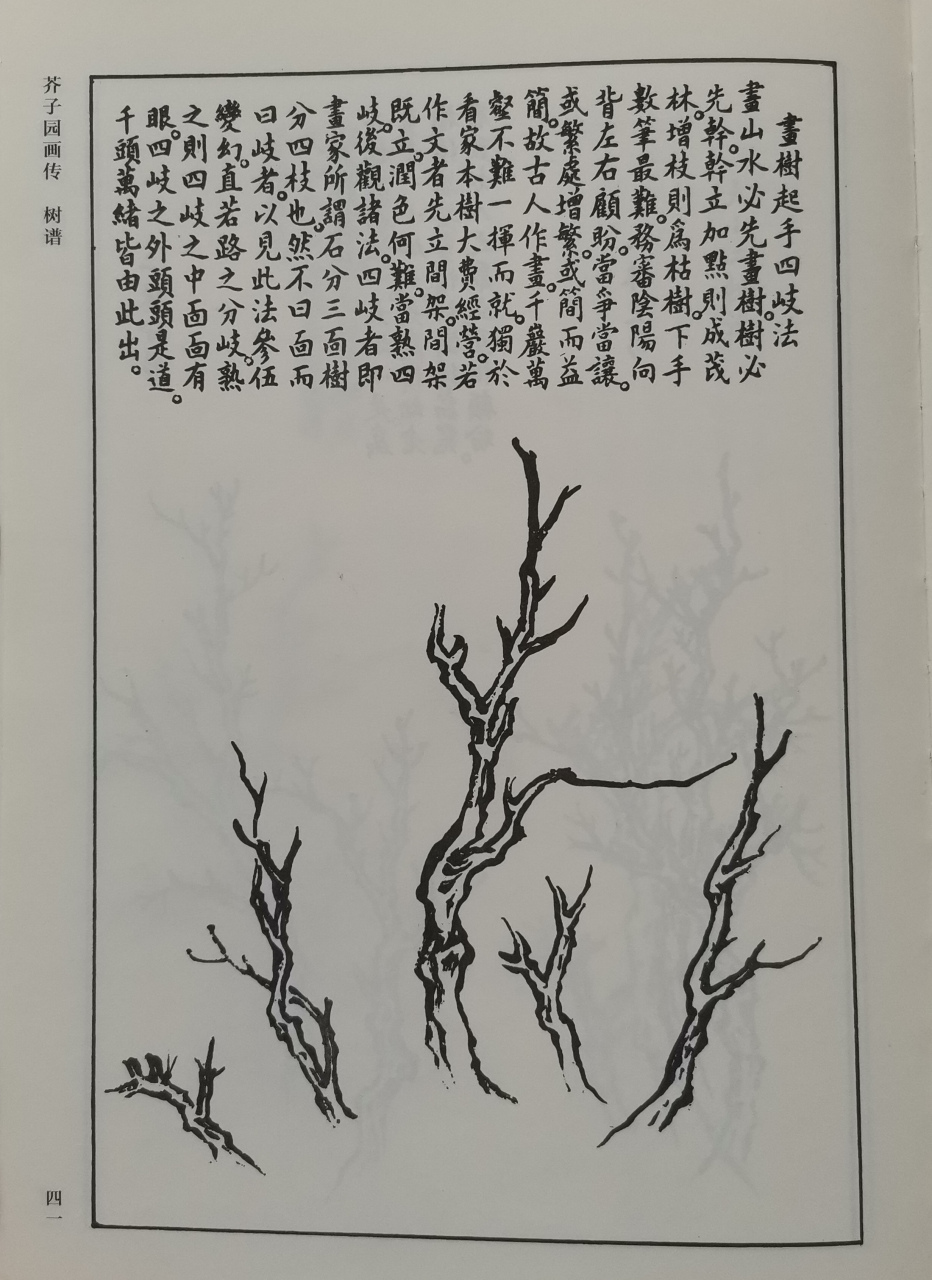 畫樹起手四岐法
畫山水必先畫樹。樹必
先幹。幹立加點則成茂
林。增枝則爲枯樹。下手
數筆最難。務審陰陽向
背左右顧盼。當爭當讓。
或繁處增繁。或簡而益
簡。故古人作畫。千巖萬
壑不難一揮而就。獨於
看家本樹大費經營。若
作文者先立間架。間架
既立。潤色何難。當熟四
岐。後觀諸法。四岐者即
畫家所謂石分三面樹
分四枝也。然不曰面而
曰岐者。以見此法參伍
變幻。直若路之分岐。熟
之則四岐之中面面有
眼。四岐之外頭頭是道。
千頭萬緒皆由此出。
芥子园画传 树谱
四一